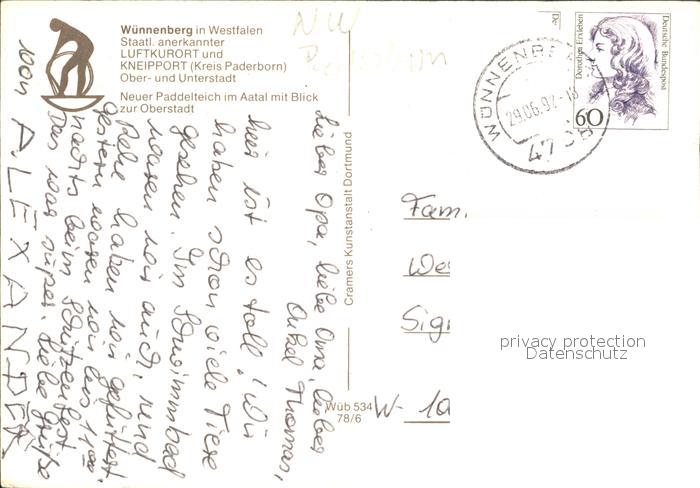 Wünnenberg in Westfalen
Staatl. anerkannter
LUFTKURORT und
KNEIPPORT (Kreis Paderborn)
Ober- und Unterstadt
Neuer Paddelteich im Aatal mit Blick
zur Oberstadt
NW
Paderborn
Lieber Opa, liebe Oma, lieber
Onkel Thomas,
hier ist es toll! Wir
haben schon viele Tiere
gesehen. Im Schwimmbad
waren wir auch, und
Rehe haben wir gefüttert.
Gestern waren wir bis 11⁰⁰
nachts beim Schützenfest.
Das war super. Liebe Grüße
von ALEXANDER
Cramers Kunstanstalt Dortmund
Wüb 534
78/6
De
Dorothea Erxleben
Deutsche Bundespost
60
WÜNNENBE
29.06.92-18
4798
Fam.
We
Sig
W-10
privacy protection
Datenschutz